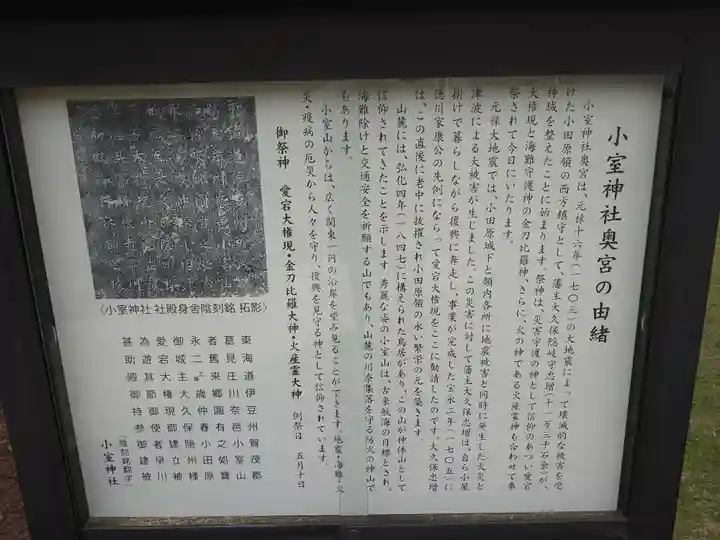 小室神社奥宮の由緒
小室神社奥宮は、元禄十六年(一七〇三)の大地震によって壊滅的な被害を受
けた小田原領の西方鎮守として、藩主大久保隠岐守忠増(十一万三千石余)が、
神域を整えたことに始まります。祭神は、災害守護の神として信仰のあつい愛宕
大権現と海難守護神の金刀比羅神、さらに、火の神である火産霊神も合わせて奉
祭されて今日にいたります。
元禄大地震では、小田原城下と領内各所に地震被害と同時に発生した火災と
津波による大被害が生じました。この災害に対して藩主大久保忠増は、自ら小屋
掛けで暮らしながら復興に奔走し、事業が完成した宝永二年(一七〇五)に
徳川家康公の先例にならって愛宕大権現をここに勧請したのです。大久保忠増
は、この直後に老中に抜擢され小田原領の永い繁栄の元を築きます。
山麓には、弘化四年(一八四七)に構えられた鳥居があり、この山が神体山として
信仰されてきたことを示します。秀麗な姿の小室山は、古来航海の目標とされ、
海難除けと交通安全を祈願する山でもあり、山麓の川奈集落を守る防火の神山で
もあります。
小室山からは、広く関東一円の沿岸を望み見ることができます。地震・海難・火
災・疫病の厄災から人々を守り、復興を見守る神として信仰されています。
御祭神 愛宕大権現・金刀比羅大神・火産霊大神 例祭日 五月十日
〈小室神社 社殿身舎陰刻銘 拓影〉
東海道伊豆州賀茂郡
葛見庄川奈邑小室山
者舊来郷圖有之処寶
永二乙歳仲春小田原
御城主大久保隠州様
愛宕大権現御建立被
為遊其節御使者早川
甚助殿御持参御建被
(陰刻銘翻字)
小室神社